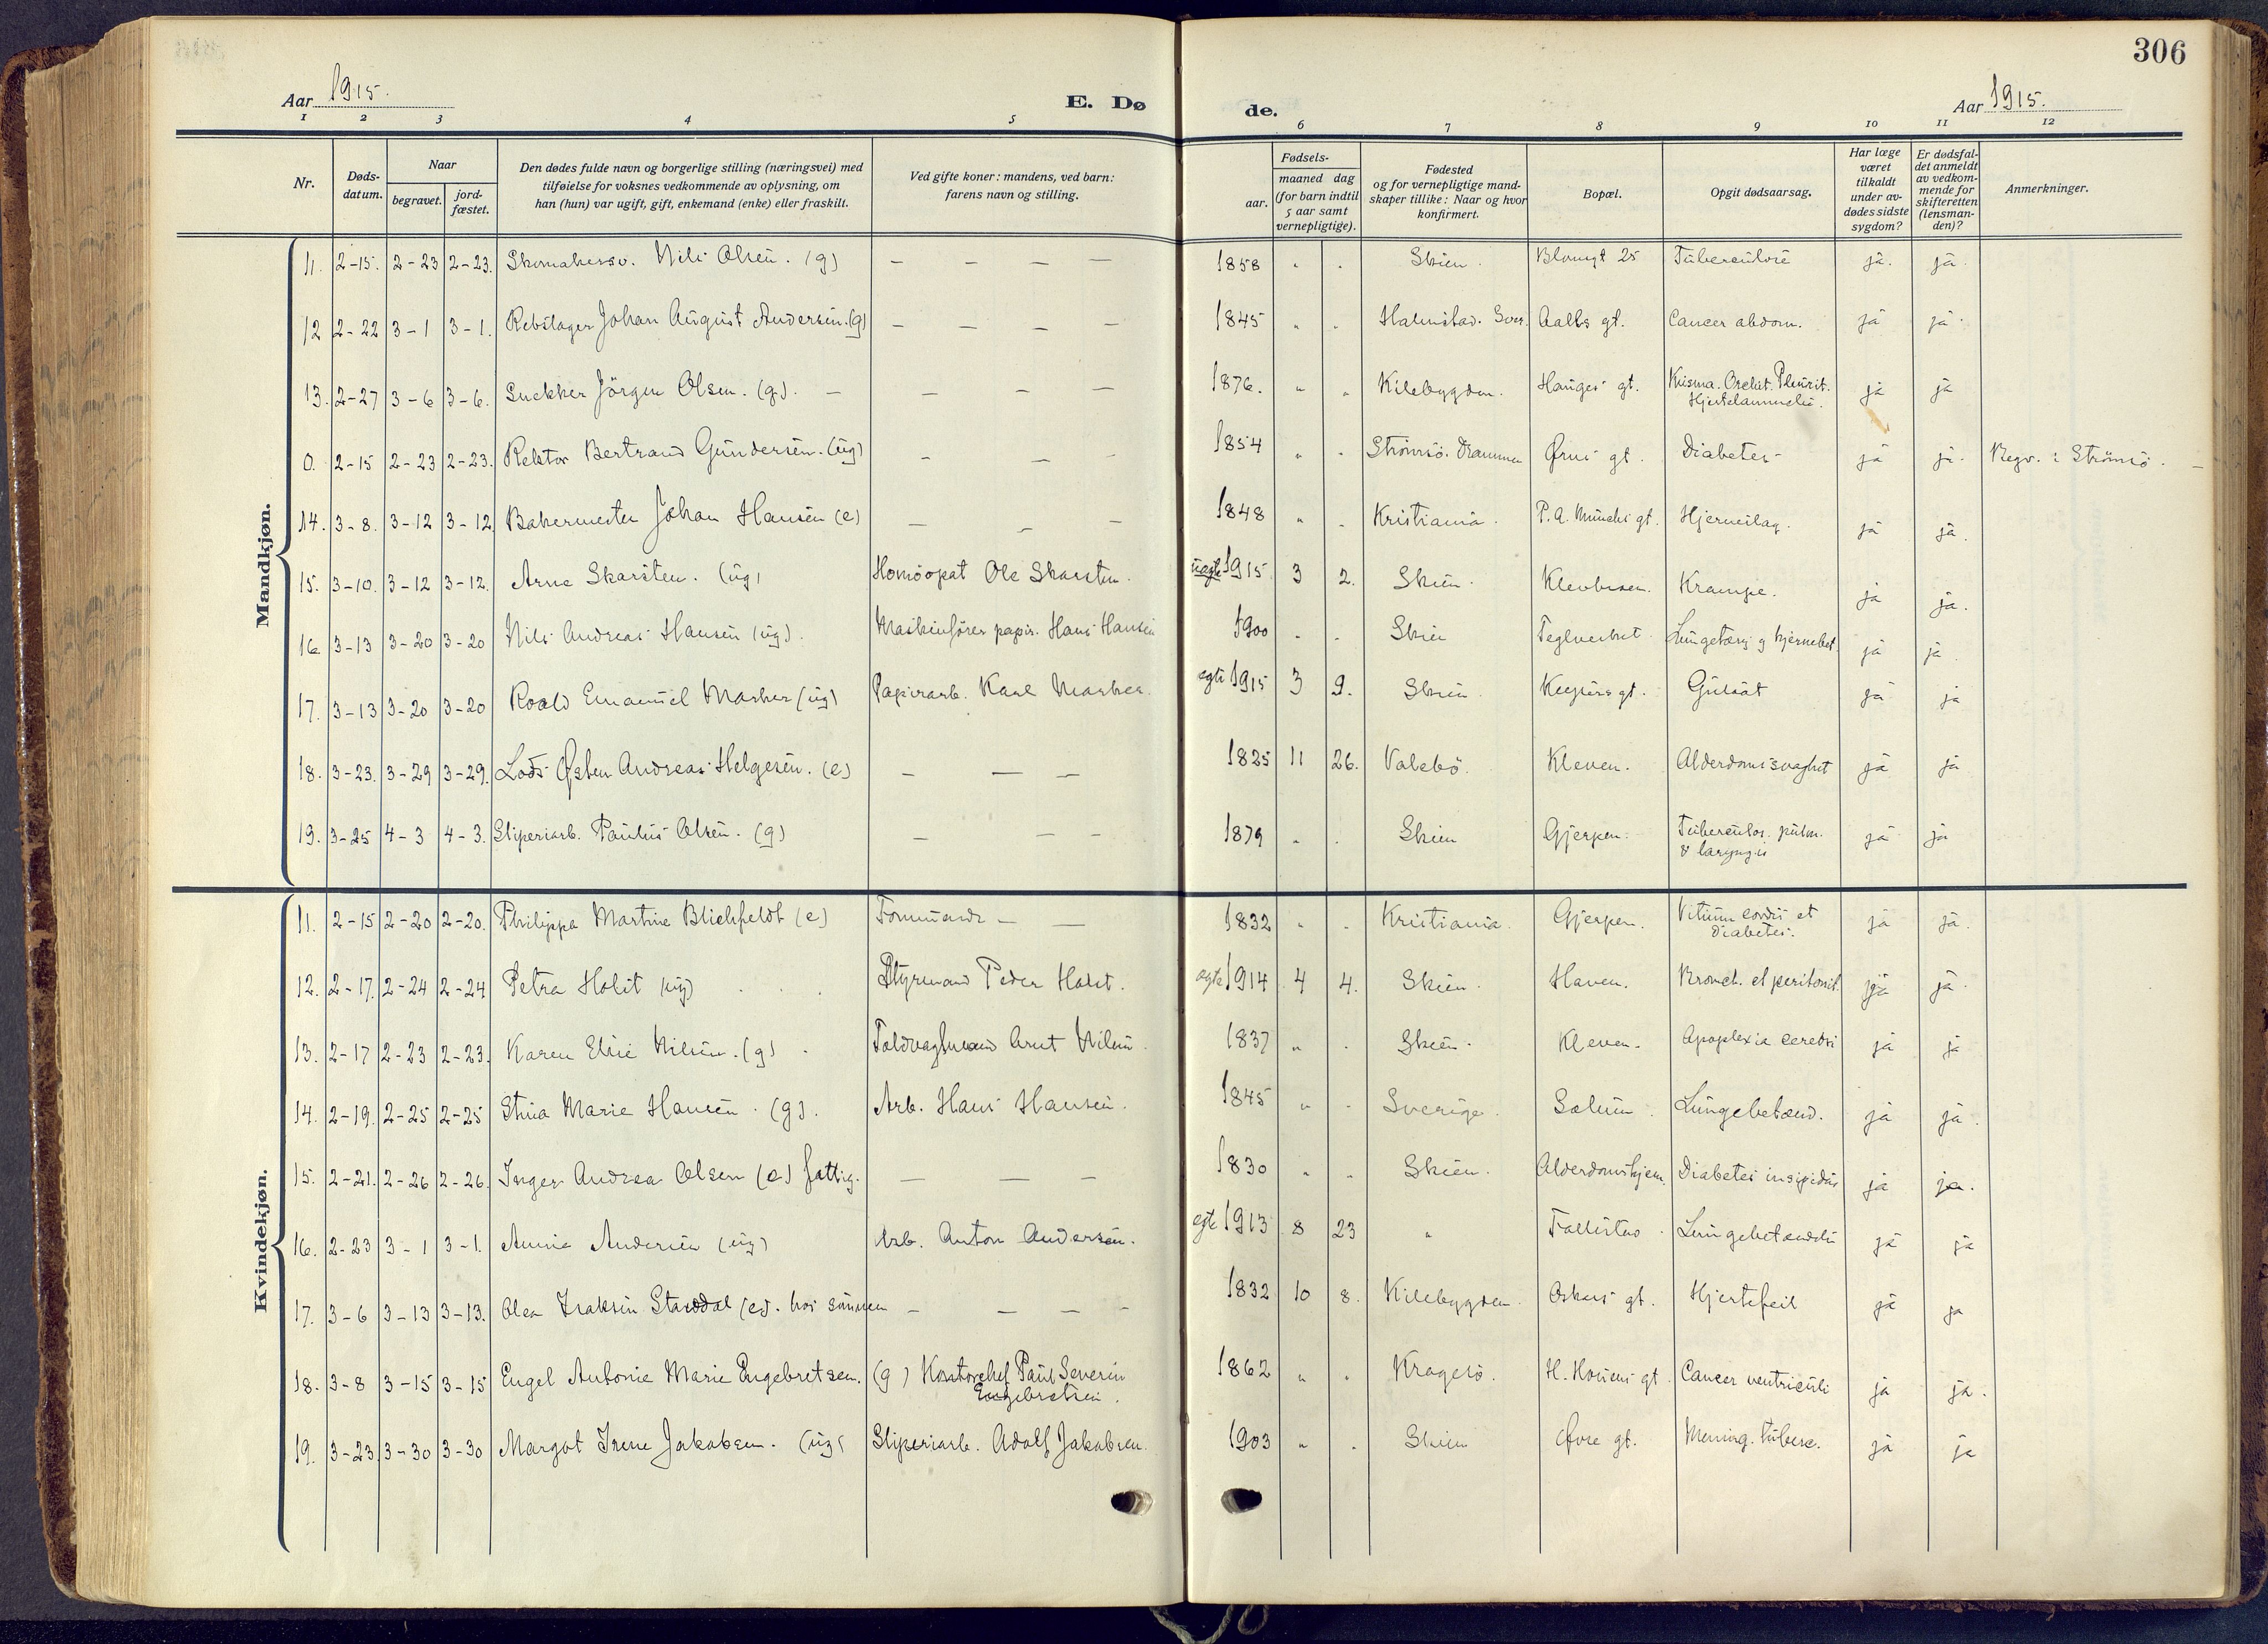 306
Aar 1915.
E. Dø
de.
Aar 1915.
1 2 3 4 5 6 7 8 9 10 11 12
Nr.
Døds-
datum.
Naar
begravet.
jord-
fæstet.
Den dødes fulde navn og borgerlige stilling (næringsvei) med
tilføielse for voksnes vedkommende av oplysning, om
han (hun) var ugift, gift, enkemand (enke) eller fraskilt.
Ved gifte koner: mandens, ved barn:
farens navn og stilling.
Fødsels-
aar.
maaned dag
(for barn indtil
5 aar samt
vernepligtige).
Fødested
og for vernepligtige mand-
skaper tillike: Naar og hvor
konfirmert.
Bopæl.
Opgit dødsaarsag.
Har læge
været
tilkaldt
under av-
dødes sidste
sygdom?
Er dødsfal-
det anmeldt
av vedkom-
mende for
skifteretten
(lensman-
den)?
Anmerkninger.
Mandkjøn.
11. 2-15. 2-23 2-23. Skomakersv. Nils Olsen. (g) — — — — 1858 " . Skien. Blomgt 25 Tuberculose ja. ja.
12 2-22 3-1 3-1. Rebslager Johan August Andersen. (g) — — — — 1845 " . Halmstad. Sver. Aalls gt. Cancer abdom. ja ja.
13. 2-27 3-6 3-6. Snekker Jörgen Olsen. (g). — — — — 1876. " " Kilebygden. Hauges gt. Pleurit. ja ja
0. 2-15 2-23 2-23. Rektor Bertrand Gundersen. (ug) — — — 1854 " . Strömsö. Drammen Ørns gt. Diabetes - ja ja. Begr. i Strömsö. —
14. 3-8. 3-12 3-12 Bakermester Johan Hansen (e) — — — 1848 " . Kristiania. P.A. Munchs gt. Hjerneslag. ja ja.
15. 3-10. 3-12 3-12. Arne Skarsten. (ug) Homöopat Ole Skarsten. uegte 1915 3 2. Skien. Klevbakken. Krampe. ja ja.
16. 3-13 3-20 3-20 Nils Andreas Hansen (ug). Maskinfører papir. Hans Hansen 1900 . . Skien Teglverket Lungetæring og hjernebet. ja ja.
17. 3-13 3-20 3-20 Roald Emanuel Marker (ug) Papirarb. Karl Marker. egte 1915 3 9. Skien Keysers gt. Gulsot ja ja
18. 3-23. 3-29 3-29. Lods Østen Andreas Helgesen. (e) — — — 1825 11 26. Valebö. Kleven. Alderdomssvaghet ja ja
19. 3-25 4-3 4-3. Sliperiarb. Paulus Olsen. (g) — — — 1879 " . Skien Gjerpen. Tuberculos. pulm.
& laryngis ja ja
Kvindekjøn.
11. 2-15 2-20 2-20. Philippa Martine Blichfeldt (e) — — 1832 " . Kristiania. Gjerpen. Vitium cordis et
diabetes. ja ja.
12. 2-17. 2-24 2-24 Petra Holst (ug) Styrmand Peder Holst. egte 1914 4 4. Skien. Haven. Bronch. et peritonit. ja ja.
13. 2-17 2-23 2-23. Karen Elise Nilsen. (g) Toldvagtmand Arnt Nilsen. 1837 " . Skien. Kleven. Apoplexia cerebri ja ja
14. 2-19. 2-25 2-25 Stina Marie Hansen. (g). Arb. Hans Hansen. 1845 " . Sverige. Solum. Lungebetænd. ja ja.
15. 2-21. 2-26 2-26. Inger Andrea Olsen (e) fattig. — — — 1830 " " Skien. Alderdomshjem. Diabetes insipidus ja ja.
16. 2-23 3-1 3-1. Annie Andersen (ug) Arb. Anton Andersen. egte 1913 8 23 " Follestad. Lungebetændelse ja ja
17. 3-6 3-13 3-13. Olea Isaksen Stavdal (e). hos sønnen — — — — 1832 10 8. Kilebygden. Oskars gt. Hjertefeil ja ja
18. 3-8 3-15 3-15 Engel Antonie Marie Engebretsen. (g) Kontorchef Paul Severin
Engebretsen. 1862 " . Kragerö. H. Houens gt. Cancer ventriculi ja ja.
19. 3-23. 3-30 3-30 Margot Irene Jakobsen. (ug) Sliperiarb. Adolf Jakobsen. 1903 " . Skien Øvre gt. Mening. tuberc. ja ja